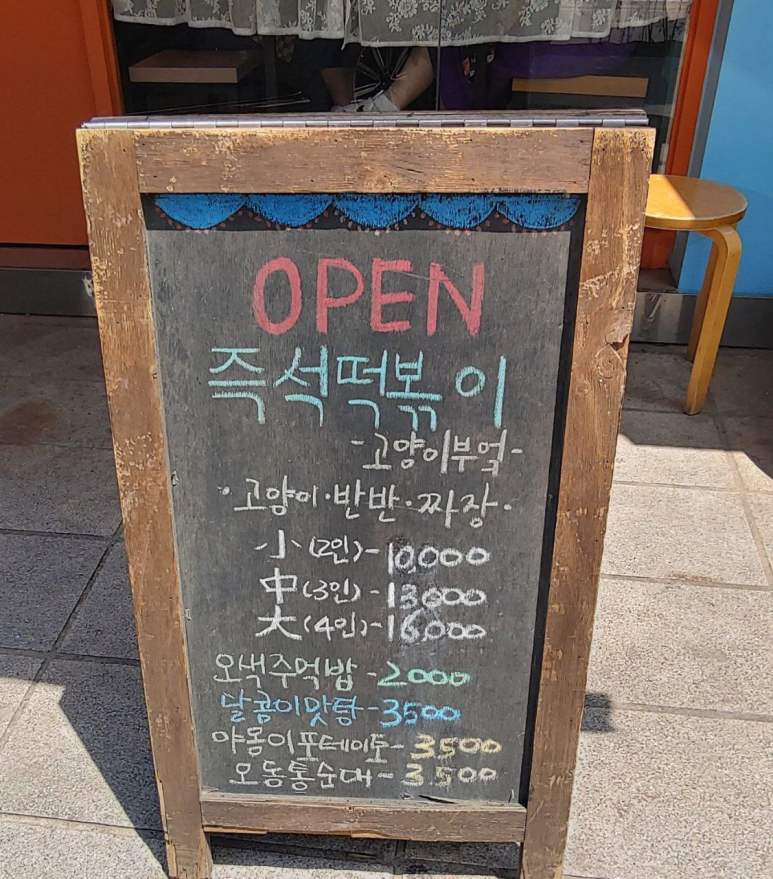 OPEN
즉석떡볶이
-고양이부엌-
·고양이·반반·짜장·
小(2인)-10,000
中(3인)-13,000
大(4인)-16,000
오색주먹밥-2000
달콤이맛탕-3500
야몽이포테이토-3500
오동통순대-3500